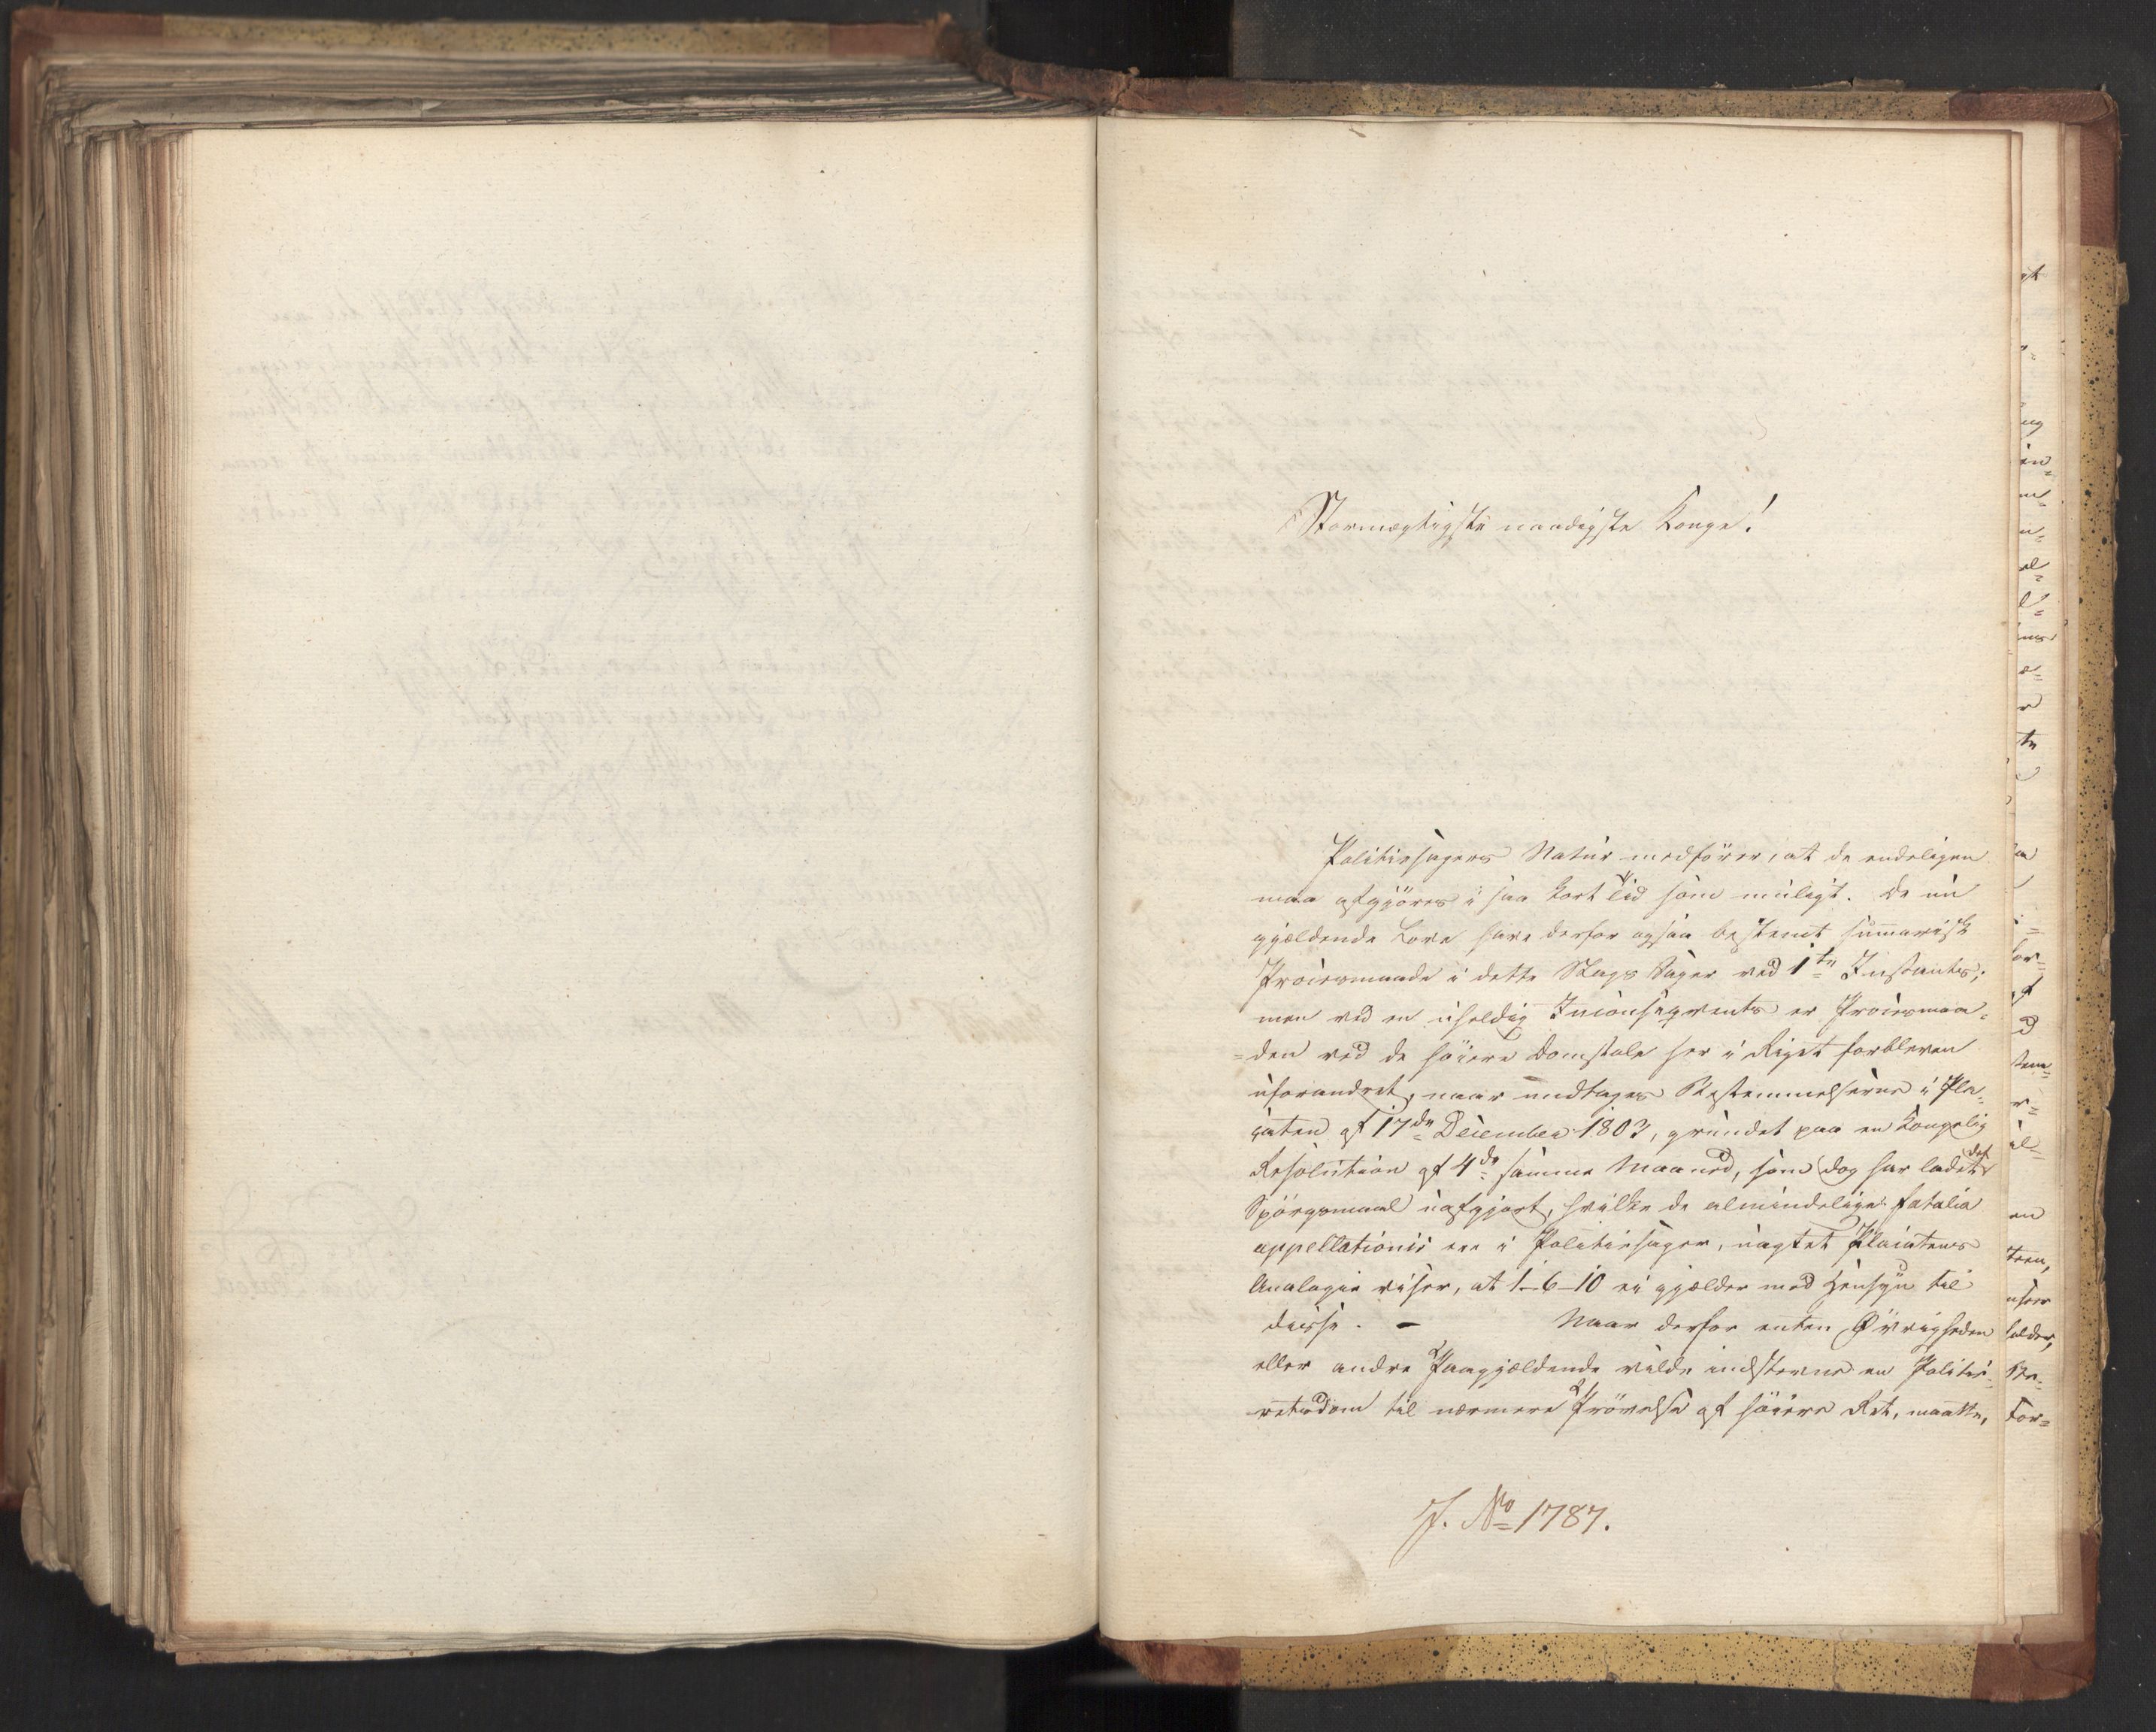 Stormægtigste naadigste Konge!
Politiesagers Natur medfører, at de endeligen
maa afgjöres i saa kort Tid som muligt. De nu
gjældende Love have derfor ogsaa bestemt summarisk
Procesmaade i dette Slags Sager ved 1te Instants;
men ved en uheldig Inconseqvents er Procesmaa-
-den ved de höiere Domstole her i Riget forbleven
uforandret, naar undtages Bestemmelserne i Pla-
caten af 17de December 1803, grundet paa en Kongelig
Resolution af 4de samme Maaned, som dog har ladet det
Spörgsmaal uafgjort, hvilke de almindelige fatalia
appellationis ere i Politiesager, uagtet Placatens
Analogie viser, at 1-6-10 ei gjælder med Hensyn til
disse. - Naar derfor enten Øvrigheden
eller andre Paagjældende vilde indstevne en Politie-
retsdom til nærmere Prövelse af höiere Ret, maatte,
J. No 1787.